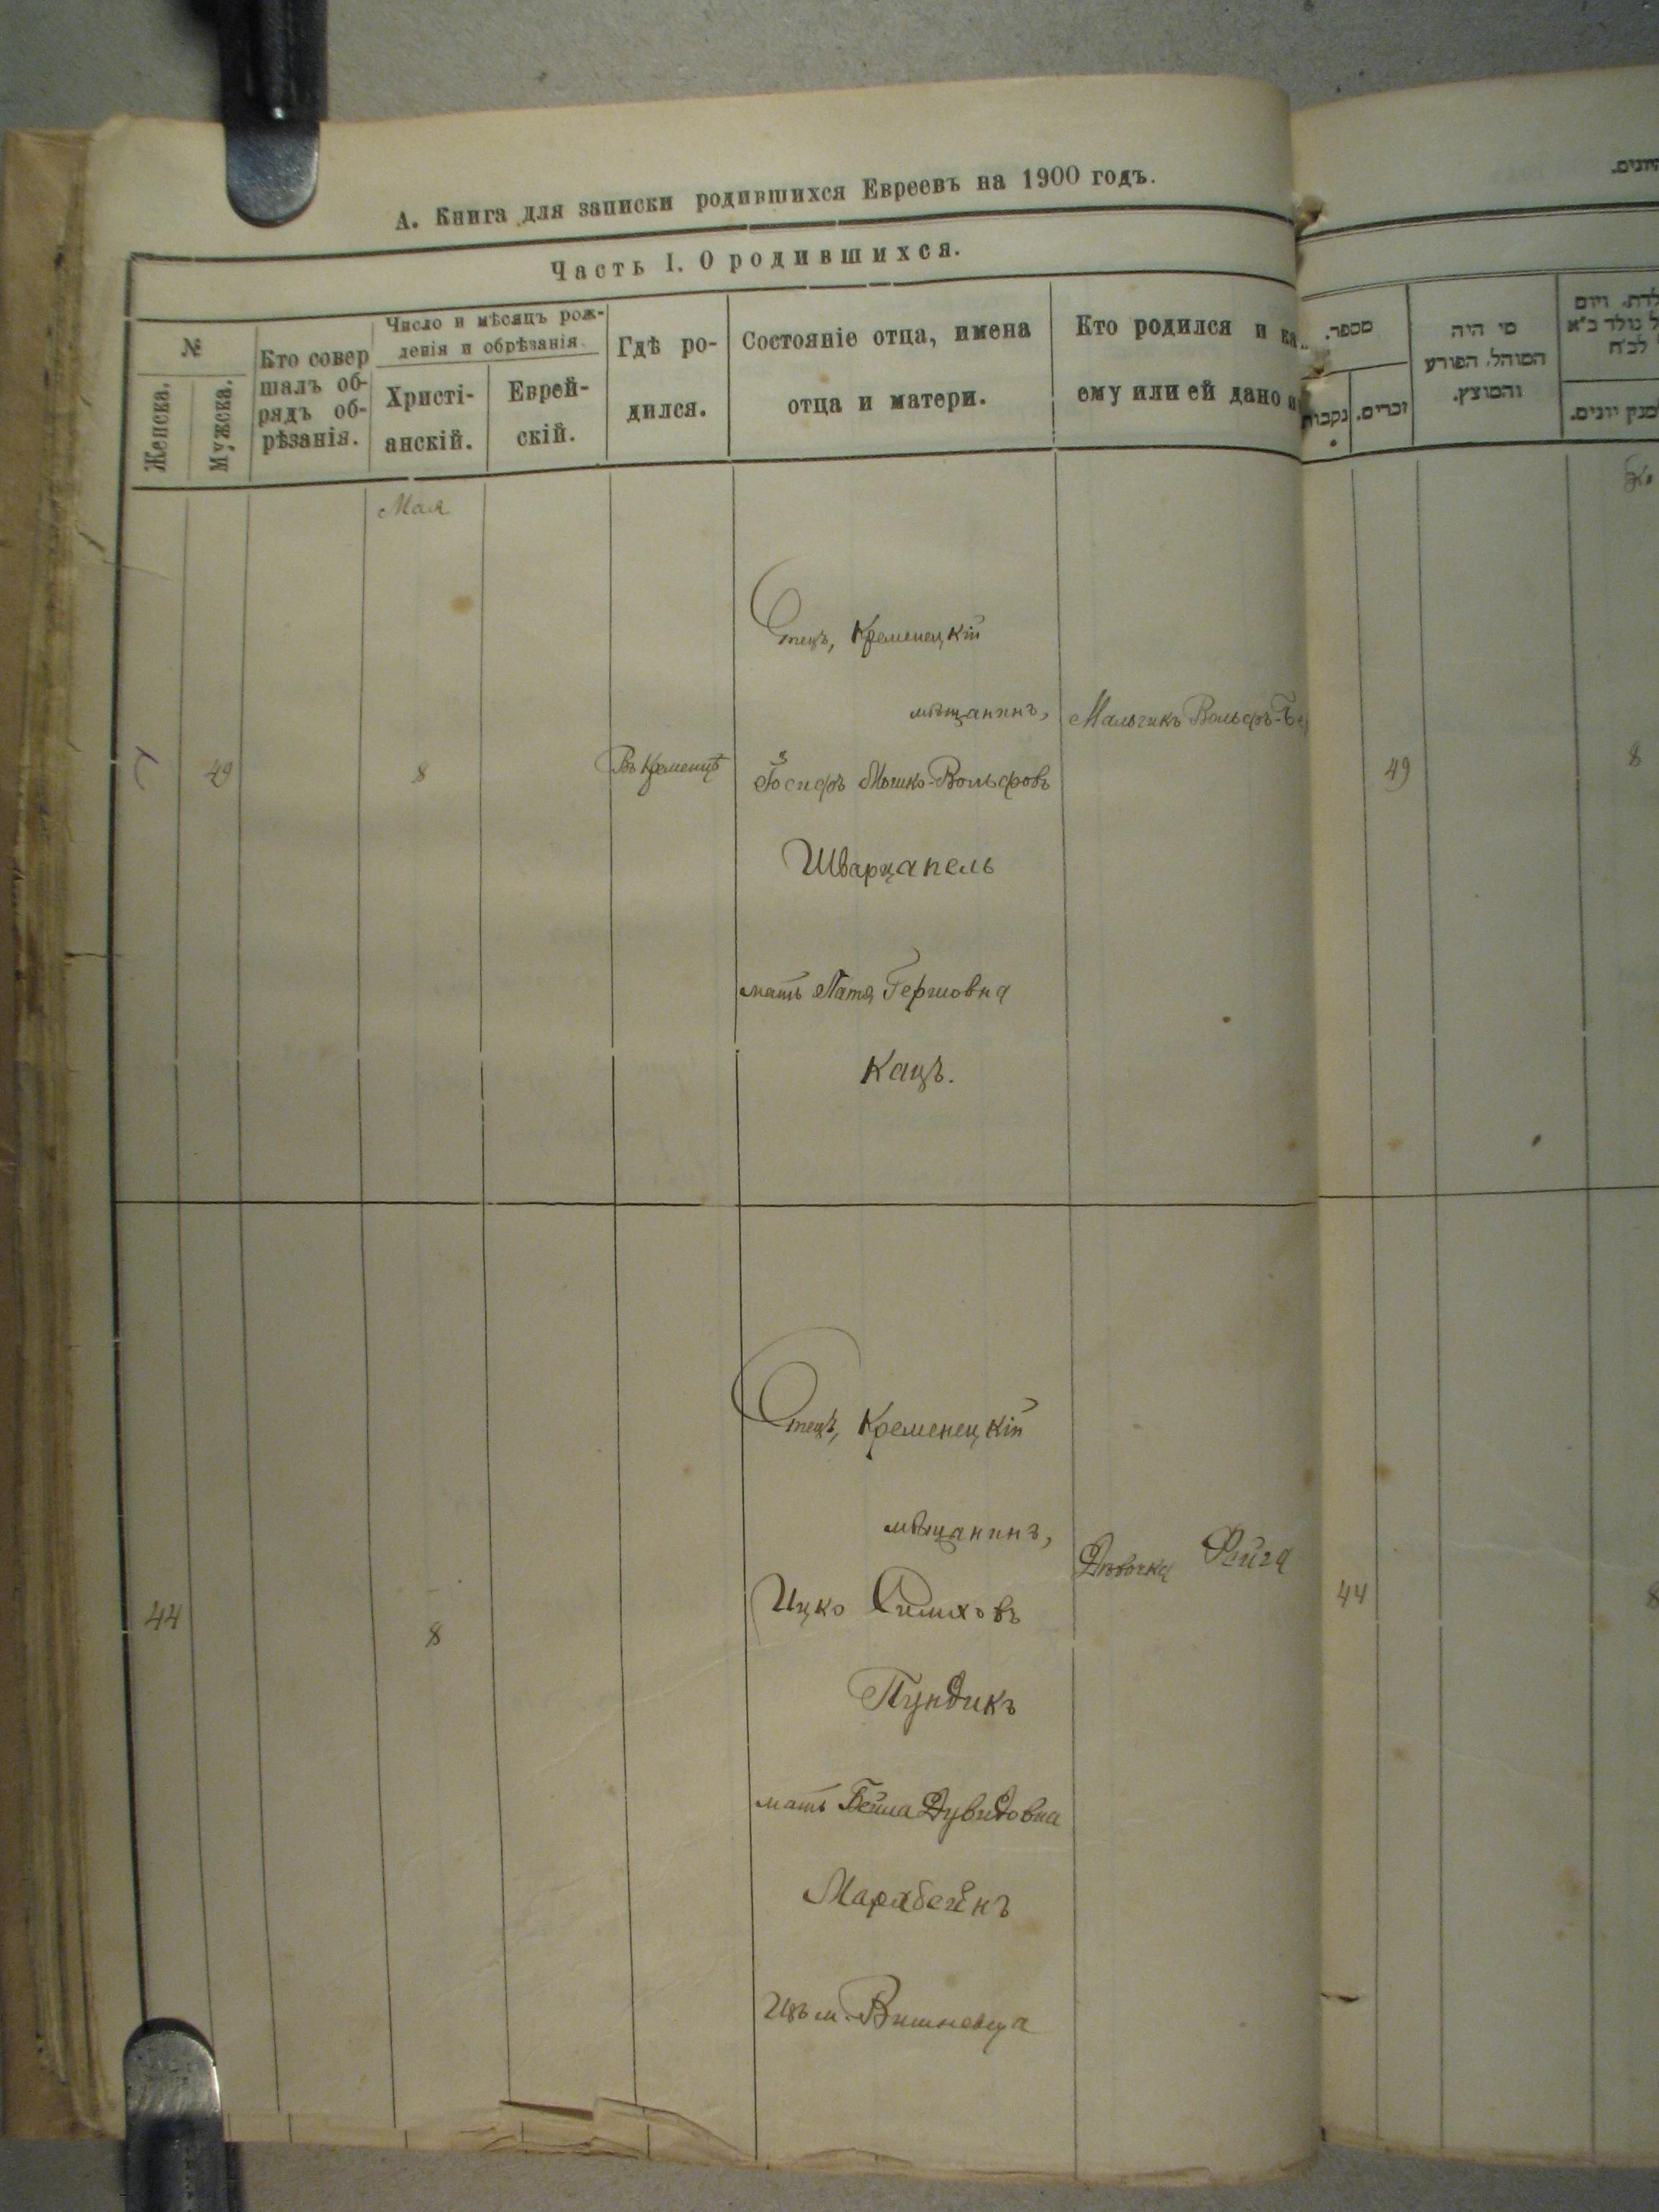 А. Книга для записки родившихся Евреевъ на 1900 годъ.
Часть I. О родившихся.
№
Женска.
Мужска.
Кто совер
шалъ об-
рядъ об-
рѣзанія.
Число и мѣсяцъ рож-
денія и обрѣзанія
Христі-
анскій.
Еврей-
скій.
Гдѣ ро-
дился.
Состояніе отца, имена
отца и матери.
Кто родился и ка
ему или ей дано и
Мая
49
8
Въ Кременцѣ
Отецъ, Кременецкій
мѣщанинъ,
Іосифъ Мошко-Вольфовъ
Шварцапель
мать Патя Гершовна
Кацъ.
Мальчикъ Вольфъ-Бе
44
8
Отецъ, Кременецкій
мѣщанинъ,
Ицко
Пундикъ
мать Бейла Дувидовна
Изъ м. Вишневца
Дѣвочка Фейга
מספר.
נקבות
זכרים.
מי היה
המוהל. הפורע
והמוצץ.
49
8
44
8